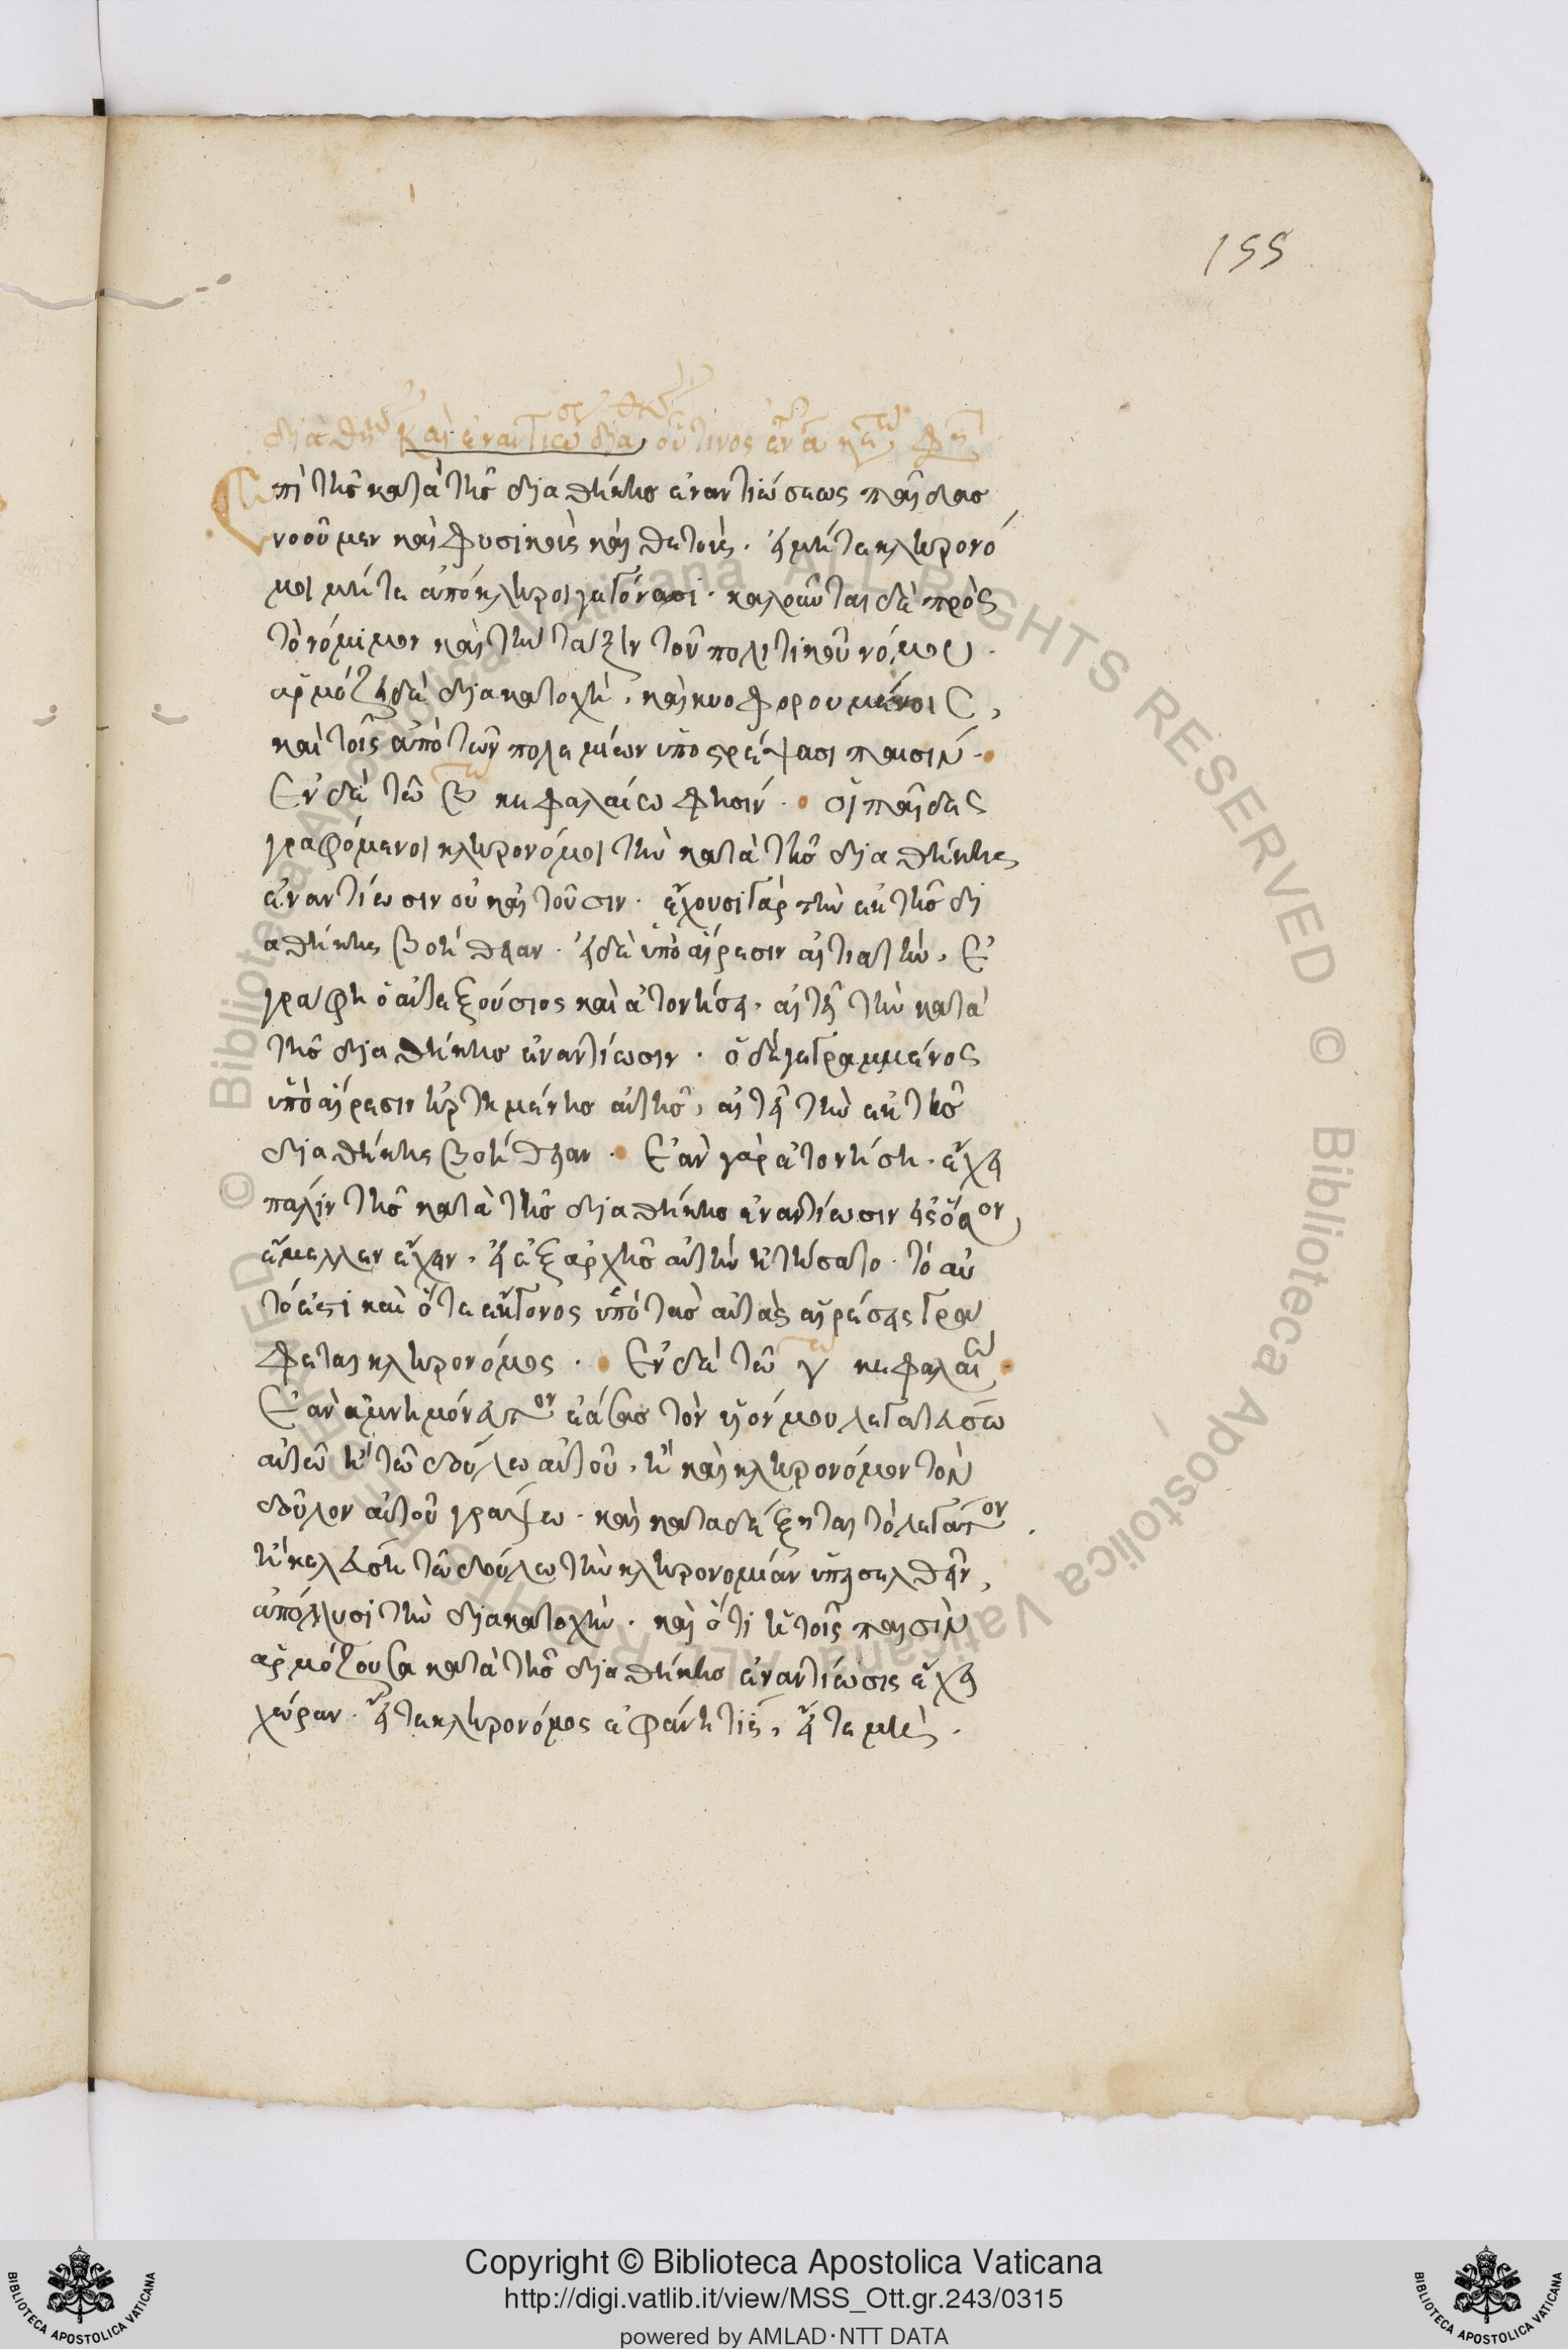 155
διαθηκ καὶ ἐναντιώσ διαθκ οὗτινος ἐν α κεφ φη
Ἐπὶ τῆς κατὰ τῆς διαθήκης ἐναντιώσεως παῖδας
νοοῦμεν καὶ φυσικοὺς καὶ θετούς. εἰ μήτε κληρονό
μοι μήτε ἀπόκληροι γεγόνασι. καλοῦνται δὲ πρὸς
τὸ νόμιμον καὶ τὴν τάξιν τοῦ πολιτικοῦ νόμου.
ἁρμόζει δὲ διακατοχὴ, καὶ κυοφορουμένοις,
καὶ τοῖς ἀπὸ τῶν πολεμίων ὑποστρέψασι παισίν.
Ἐν δὲ τῶ β τω κεφαλαίω φησίν. οἱ παῖδες
γραφόμενοι κληρονόμοι τὴν κατὰ τῆς διαθήκης
ἐναντίωσιν οὐκ αἰτοῦσιν. ἔχουσι γὰρ τὴν ἐκ τῆς δι
αθήκης βοήθειαν. εἰ δὲ ὑπὸ αἵρεσιν αἰτιατὴν, ἐ
γράφη ὁ αὐτεξούσιος καὶ ἀτονήσει, αἰτεῖ τὴν κατὰ
τῆς διαθήκης ἐναντίωσιν. ὁ δὲ γεγραμμένος
ὑπὸ αἵρεσιν ἠρτημένης αὐτῆς, αἰτεῖ τὴν ἐκ τῆς
διαθήκης βοήθειαν. Ἐὰν γὰρ ἀτονήση. ἔχει
πάλιν τῆς κατὰ τῆς διαθήκης ἐναντίωσιν εἰς ὅσον
ἔμελλεν ἔχειν, εἰ ἐξ ἀρχῆς αὐτὴν ἠτήσατο. τὸ αὐ
τό ἐστι καὶ ὅτε ἔκγονος ὑπὸ τὰς αὐτὰς αἱρέσεις γρά
φεται κληρονόμος. Ἐν δὲ τῶ γ τω κεφαλαίω
Ἐὰν ἀμνημόνευτον ἐάσας τὸν υἱόν μου λεγατεύσω
αὐτῶ ἢ τῶ δούλω αὐτοῦ, ἢ καὶ κληρονόμον τὸν
δοῦλον αὐτοῦ γράψω. καὶ καταδέξηται τὸ λεγάτον
ἢ κελεύση τῶ δούλω τὴν κληρονομίαν ὑπεισελθεῖν,
ἀπόλλυσι τὴν διακατοχὴν. καὶ ὅτι ἡ τοῖς παισὶν
ἁρμόζουσα κατὰ τῆς διαθήκης ἐναντίωσις ἔχει
χώραν. εἴτε κληρονόμος ἐφάνη τις, εἴτε μὴ.
Copyright © Biblioteca Apostolica Vaticana
http://digi.vatlib.it/view/MSS_Ott.gr.243/0315
powered by AMLAD·NTT DATA